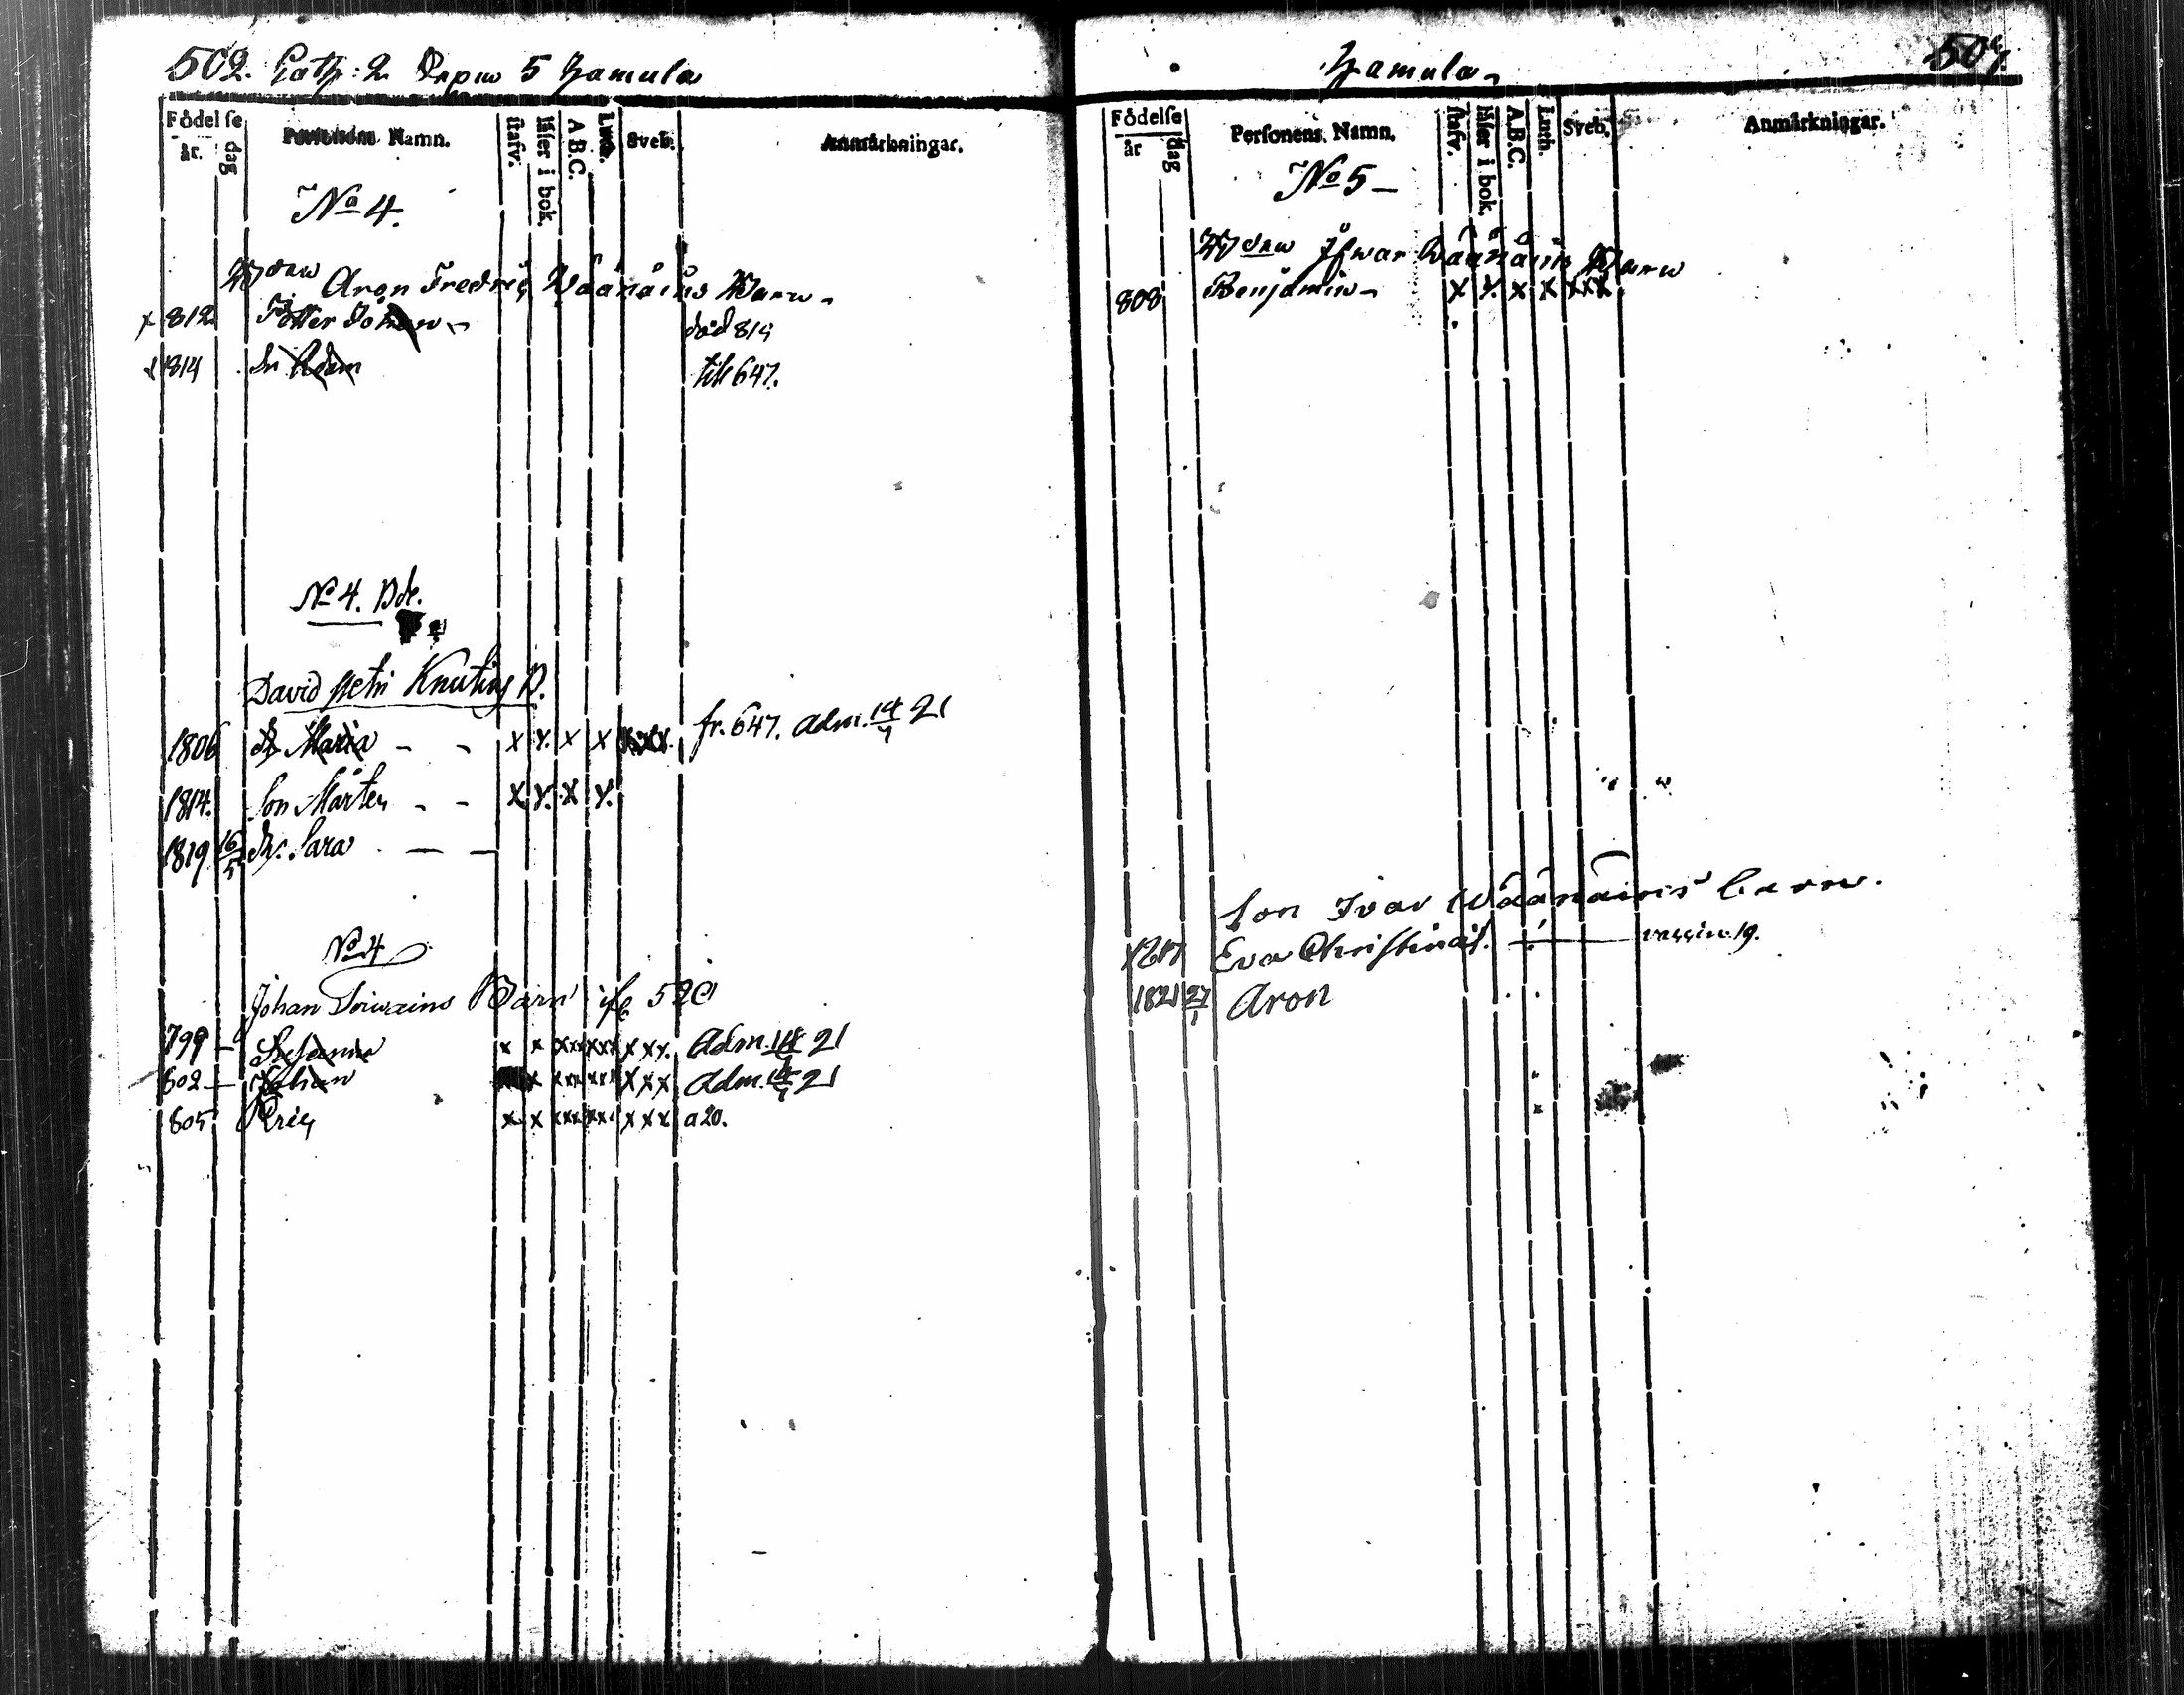 502. Gath: 2 5 Hamula
Födelse
år. dag
Personens Namn.
stafv.
läser i bok.
A.B.C.
Luth.
Sveb.
Anmärkningar.
No 4.
Aron Fredric Wäänäins Barn
x 812 Petter Johan död 814
x 1814 Adam till 647.
No 4. Bde.
David Petri Knuting B.
1806 dr Maria - - x x. x x xxx. fr. 647. adm. 14/1 21
1814. Son Mårten - - x x. x x.
1819 16/5 dr. Sara - -
No 4
Johan Toiwains Barn 520
799 - Susanna x x xxx xxx xxx. adm. 14/1 21
802 - Johan x xxx xxx xxx adm. 14/1 21
805 Eric x x xxx xxx xxx a 20.
Hamula 507.
Födelse
år dag
Personens Namn.
stafv.
läser i bok.
A.B.C.
Luth.
Sveb.
Anmärkningar.
No 5 -
Ifwar Wäänäins Barn
808 Benjamin - x x. x x xxx
Son Ivar Wäänäins barn.
1817 Eva Christina vaccin. 19.
1821 27/1 Aron